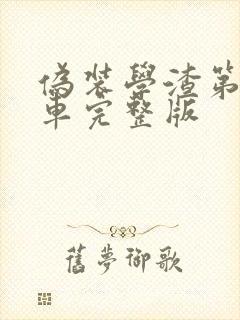 偽装學渣第
車完整版
舊夢御歌